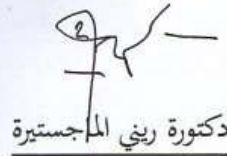 دكتورة ريني الماجستيرة